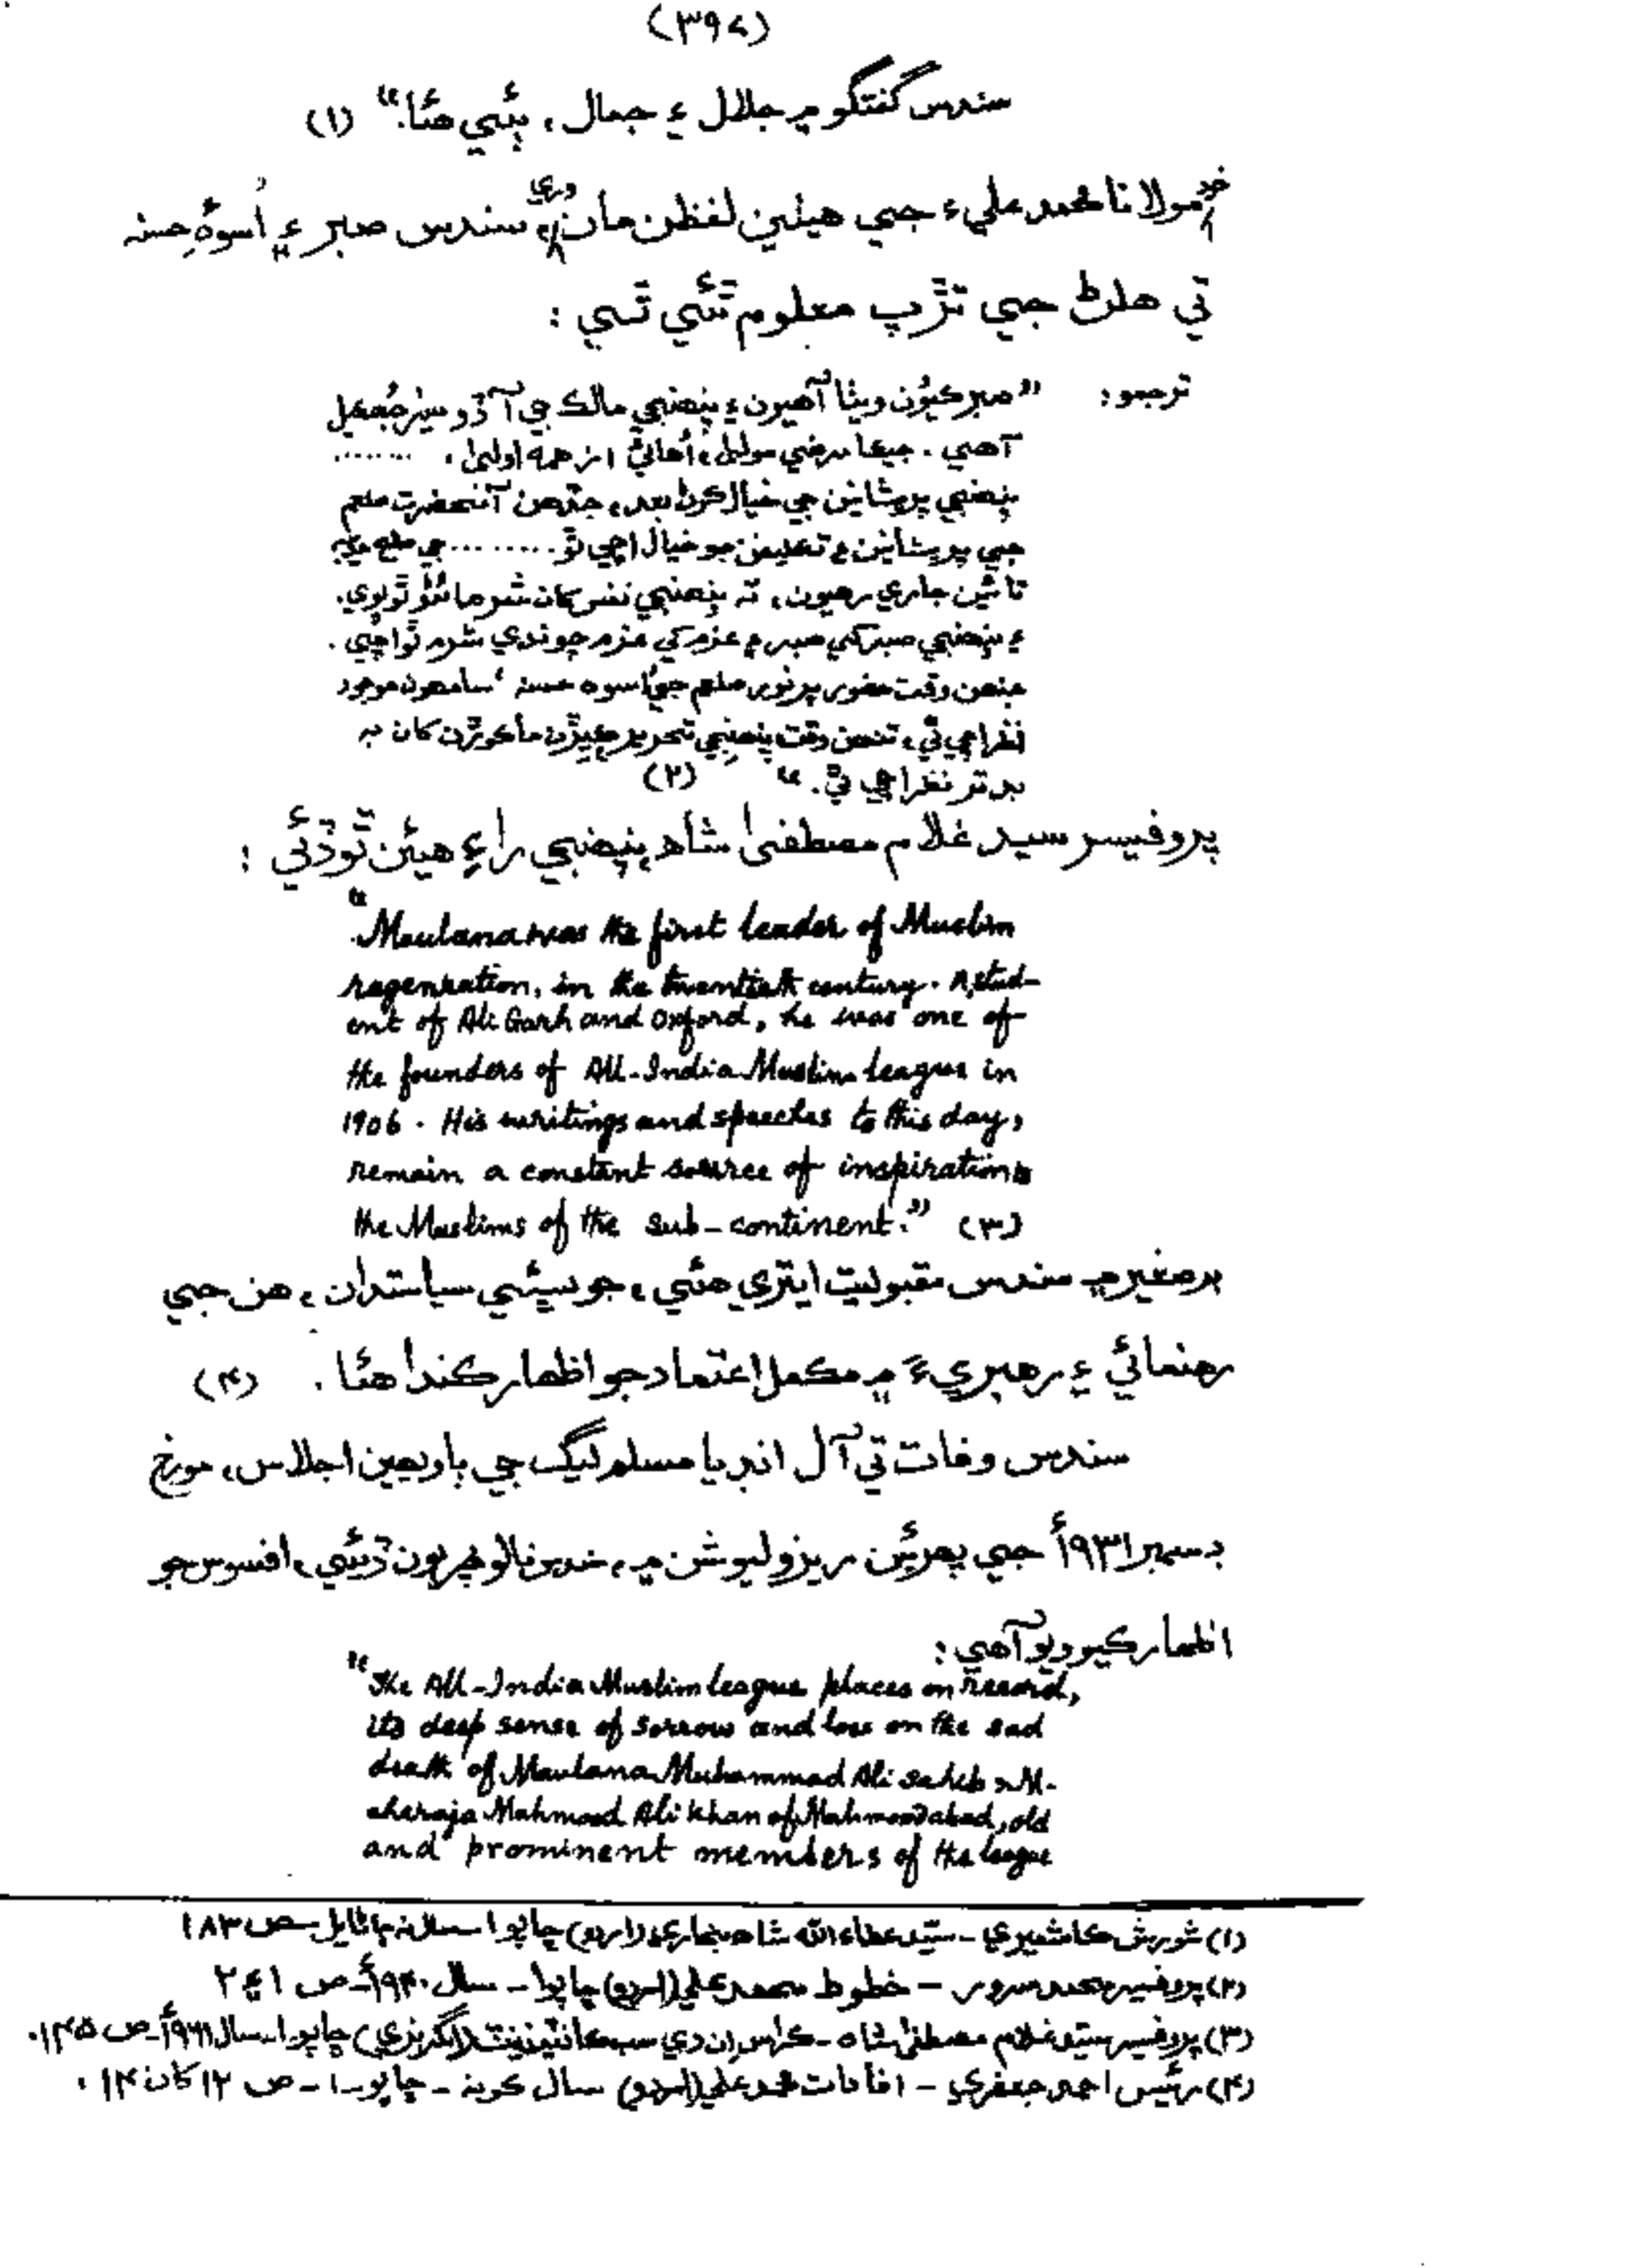 (۳۹۷)
سندس گفتگو ۾ جلال ۽ جمال، ٻئي هئا." (۱)
خود مولانا محمد عليءَ جي هيٺين لفظن مان وري، سندس صبر ۽ اُسوهٔ حسنہ
تي هلڻ جي تڙپ معلوم ٿئي ٿي :
ترجمو: "صبر ڪيون ويٺا آهيون ۽ پنهنجي مالڪ جي آڏو سر جهڪيل
آهي. جيڪا مرضي مولىٰ، اُهائي از همه اولىٰ. .......
پنهنجي پريشانين جي خيال ڪرڻ بعد، جڏهن آنحضرت صلعم
جي پريشانين ۽ تڪليفن جو خيال اچي ٿو ......... جي
تائين جاري رهيون، تہ پنهنجي نفس کان شرمائڻو ٿو پوي.
۽ پنهنجي صبر کي صبر ۽ عزم کي عزم چوندي شرم ٿو اچي.
جنهن وقت حضور پرنور صلعم جي اُسوه حسنہ سامهون موجود
نظر اچي ٿي، تنهن وقت پنهنجي تحرير ماڪوڙن کان بہ
بدتر نظر اچي ٿي." (۲)
پروفيسر سيد غلام مصطفىٰ شاهه پنهنجي راءِ هيئن ٿو ڏئي :
"Maulana was the first leader of Muslim
regenration, in the twentieth century. A stud-
ent of Ali Garh and Oxford, he was one of
the founders of All-India Muslim league in
1906. His writings and speeches to this day,
remain a constant source of inspiration to
the Muslims of the sub-continent." (۳)
برصغير ۾ سندس مقبوليت ايتري هئي، جو سڀئي سياستدان، هن جي
رهنمائي ۽ رهبريءَ ۾ مڪمل اعتماد جو اظهار ڪندا هئا. (۴)
سندس وفات تي آل انڊيا مسلم ليگ جي باويهين اجلاس، مورخ
ڊسمبر ۱۹۳۱ع جي پهرئين ريزوليوشن ۾، ڏيئي، افسوس جو
اظهار ڪيو ويو آهي :
"The All-India Muslim league places on record,
its deep sense of sorrow and loss on the sad
death of Maulana Muhammad Ali Saheb & M-
aharaja Mahmood Ali Khan of Mahmoodabad, old
and prominent members of the league
(۱) شورش ڪاشميري - سيد عطاءالله شاهه بخاري (اردو) ڇاپو ۱ - سال نہ ڄاڻايل - ص ۱۸۳
(۲) پروفيسر محمد سرور - خطوط محمد علي (اردو) ڇاپو ۱ - سال ۱۹۴۰ع - ص ۲۴۱
(۳) پروفيسر سيد غلام مصطفىٰ شاهه - ڪراس ان دي سب ڪانٽيننٽ (انگريزي) ڇاپو ۱ - سال ۱۹۶۱ع - ص ۱۴۵.
(۴) رئيس احمد جعفري - افادات محمد علي (اردو) سال ڪونہ - ڇاپو ۱ - ص ۱۲ کان ۱۴.